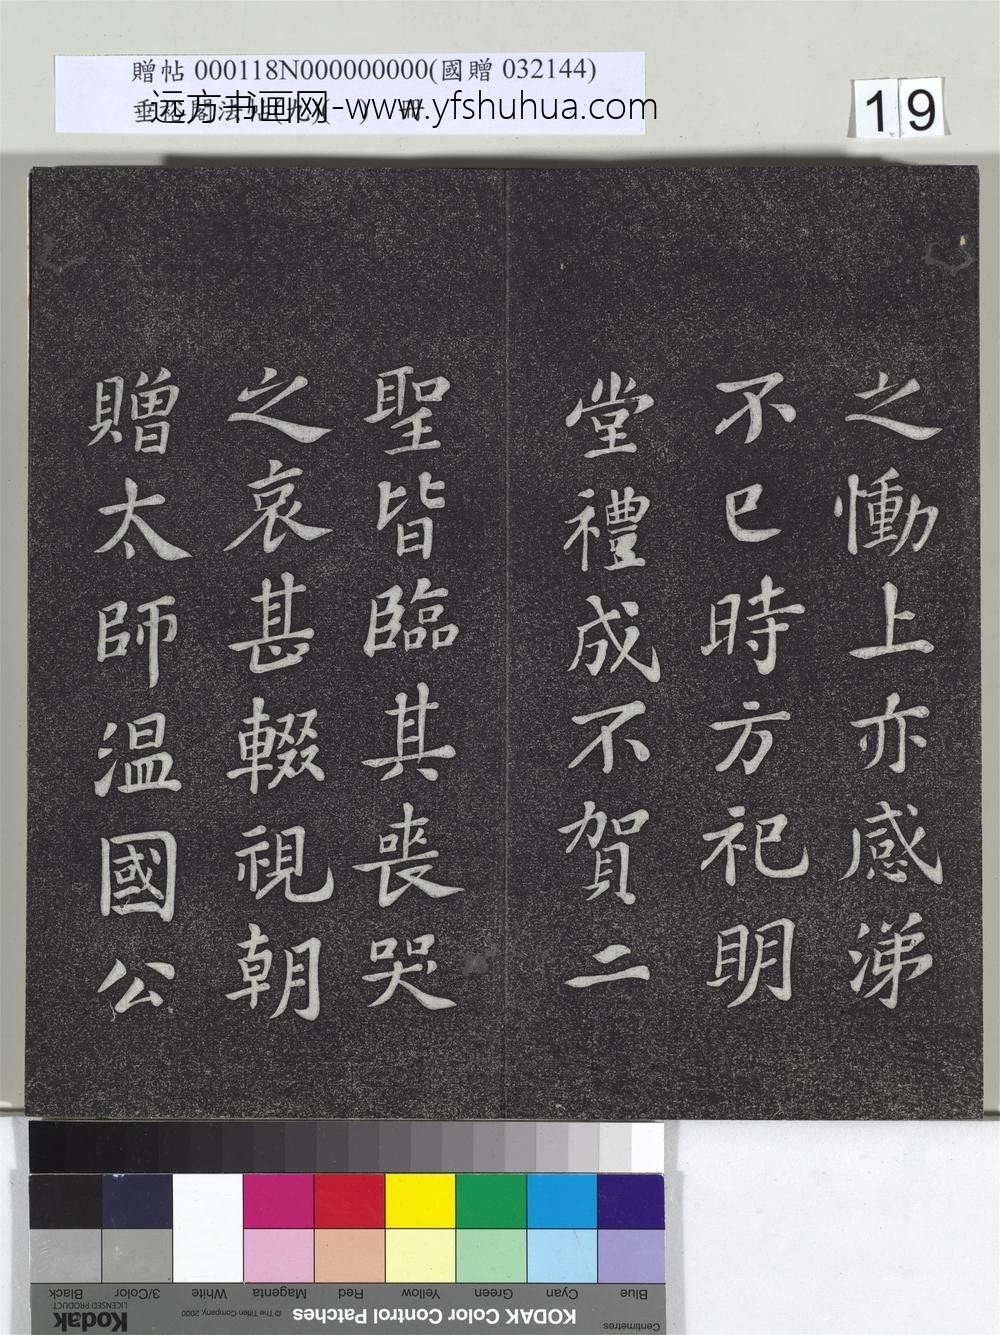 贈帖 000118N000000000(國贈 032144)
远方书画网-www.yfshuhua.com
19
之慟上亦感涕
不已時方祀明
堂禮成不賀二
聖皆臨其喪哭
之哀甚輟視朝
贈太師温國公
Blue Cyan Green Yellow Red Magenta White 3/Color Black
Centimetres
KODAK Color Control Patches
© The Tiffen Company, 2000
Kodak
LICENSED PRODUCT